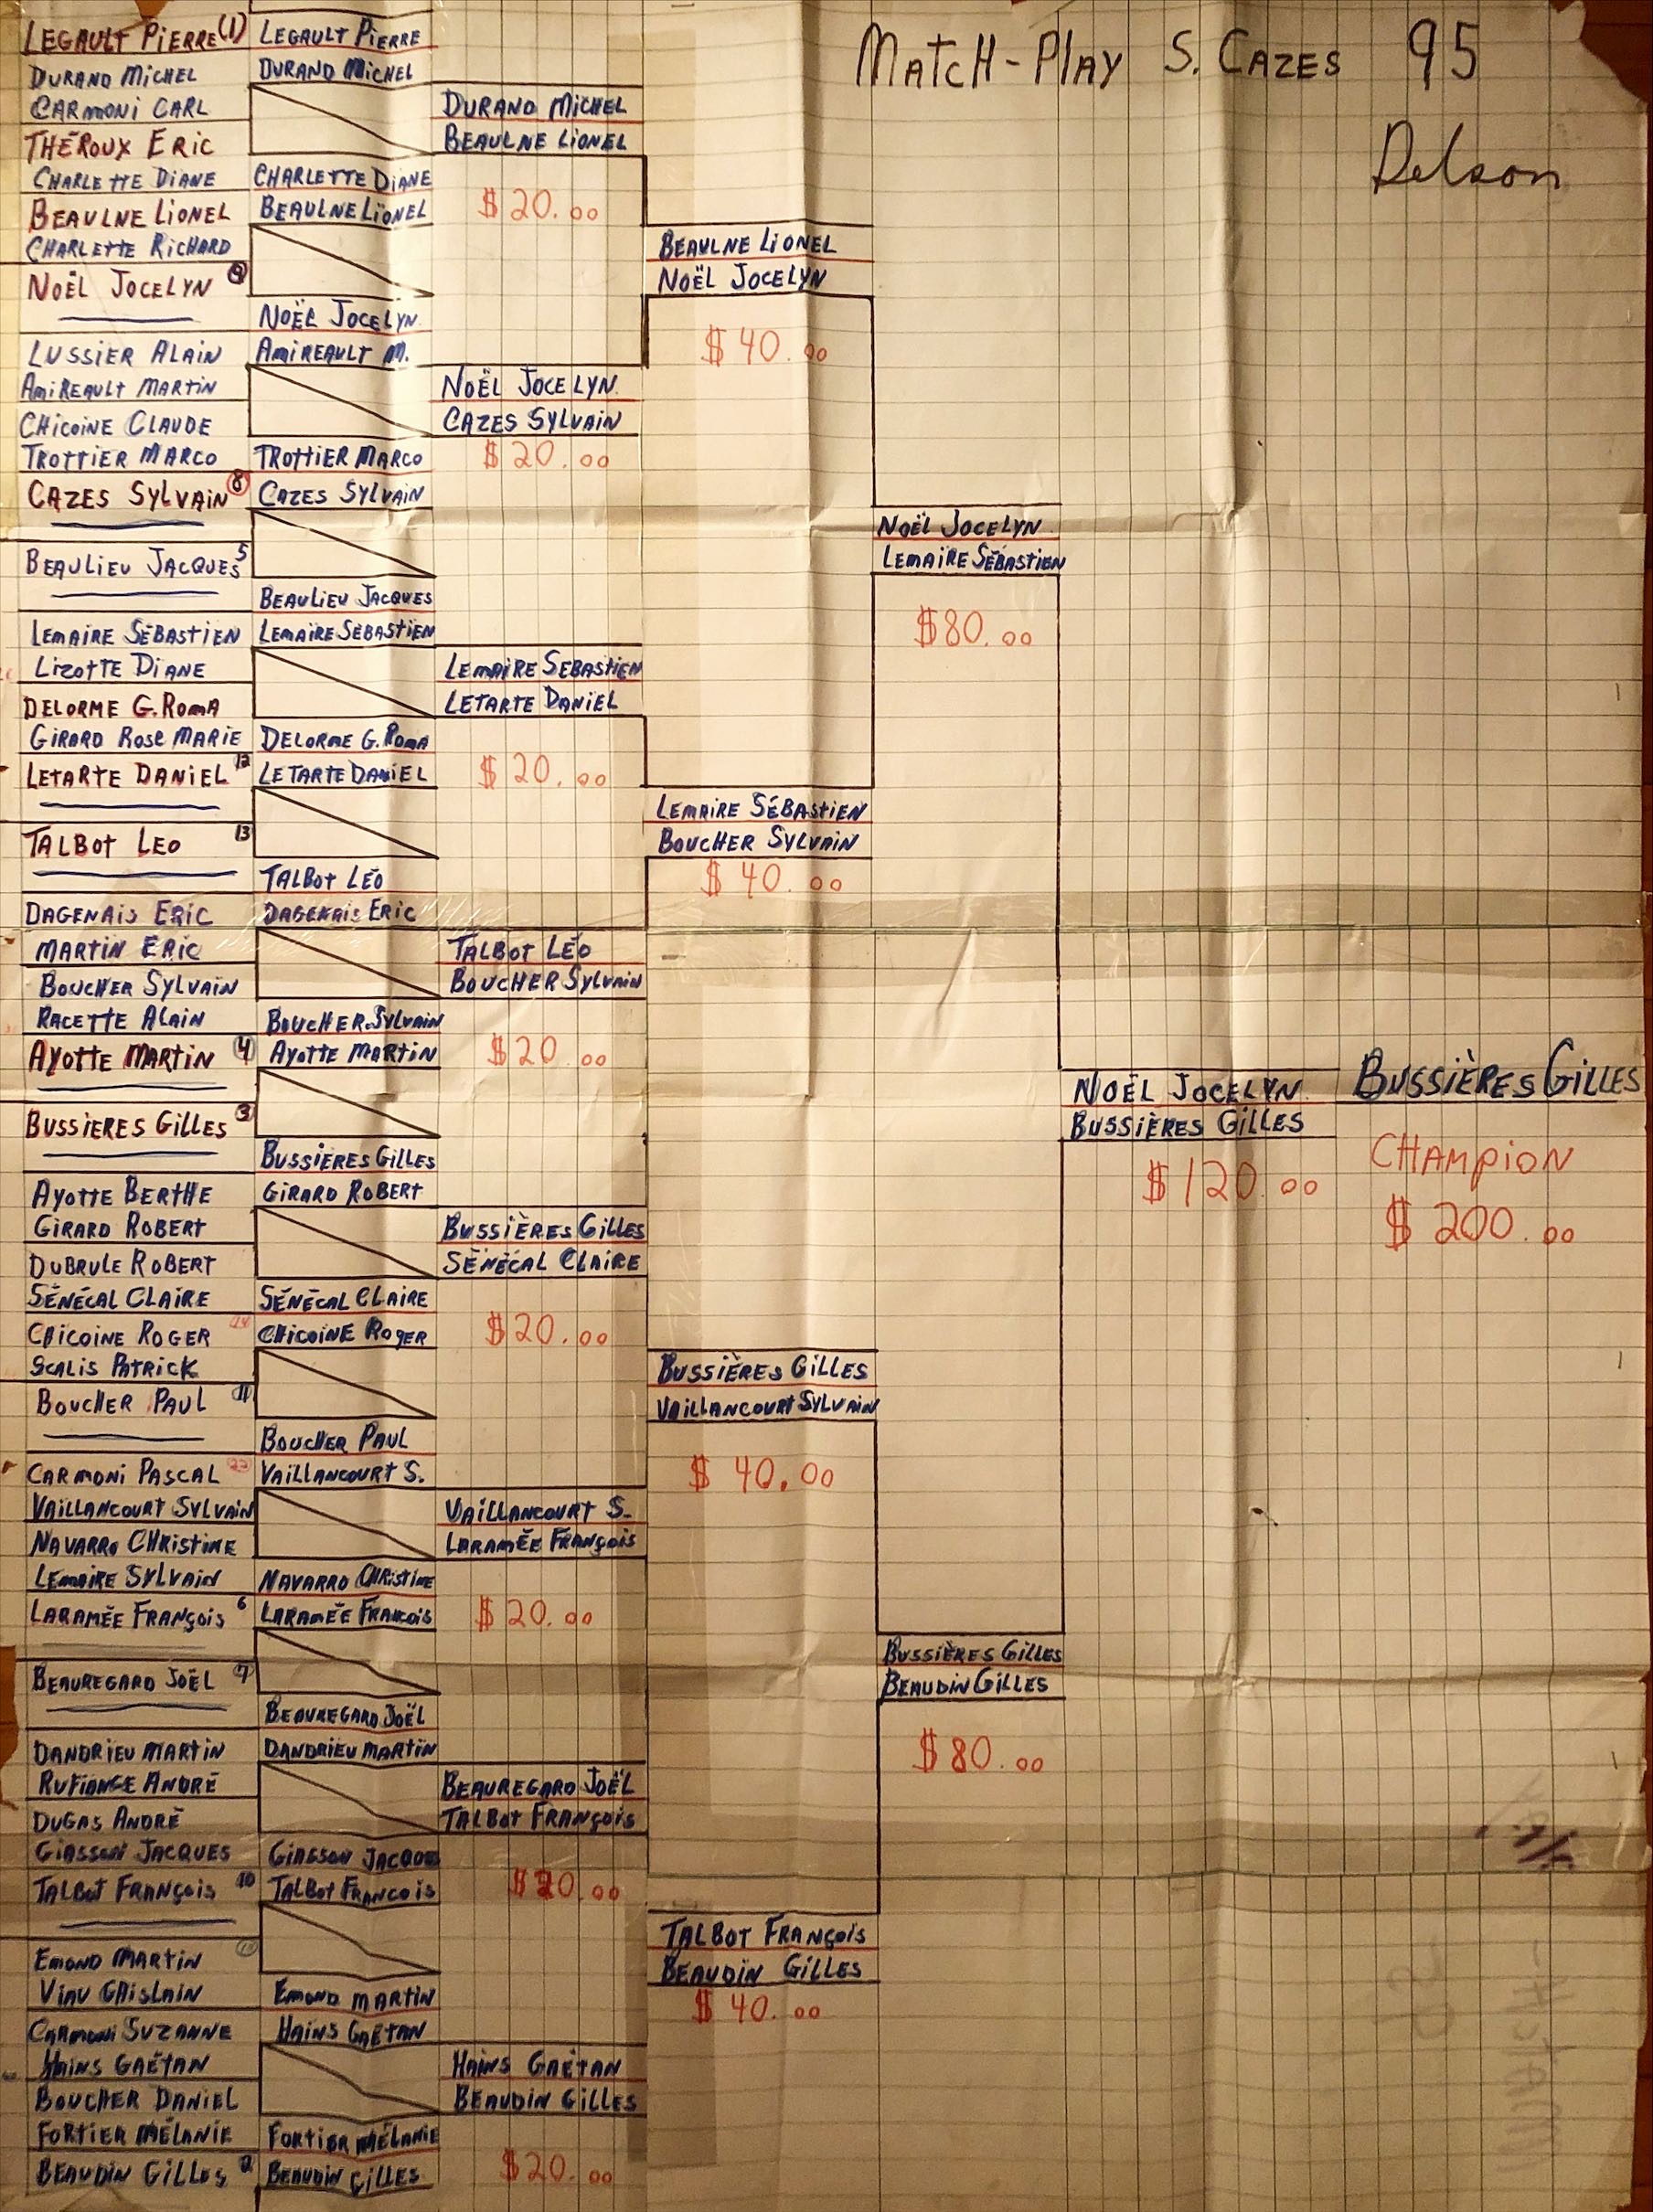 MATCH-PLAY S. CAZES 95
Delson
LEGAULT PIERRE (1)
DURAND MICHEL
CARMONI CARL
THÉROUX ERIC
CHARLETTE DIANE
BEAULNE LIONEL
CHARLETTE RICHARD
NOËL JOCELYN
LUSSIER ALAIN
AMIREAULT MARTIN
CHICOINE CLAUDE
TROTTIER MARCO
CAZES SYLVAIN 8
BEAULIEU JACQUES 5
LEMAIRE SÉBASTIEN
LIZOTTE DIANE
DELORME G. ROMA
GIRARD ROSE MARIE
LETARTE DANIEL 12
TALBOT LEO 13
DAGENAIS ERIC
MARTIN ERIC
BOUCHER SYLVAIN
RACETTE ALAIN
AYOTTE MARTIN 4
BUSSIERES GILLES 3
AYOTTE BERTHE
GIRARD ROBERT
DUBRULE ROBERT
SÉNÉCAL CLAIRE
CHICOINE ROGER 14
SCALIS PATRICK
BOUCHER PAUL 11
CARMONI PASCAL 22
VAILLANCOURT SYLVAIN
NAVARRO CHRISTINE
LEMAIRE SYLVAIN
LARAMÉE FRANÇOIS 6
BEAUREGARD JOËL 7
DANDRIEU MARTIN
RUFIANGE ANDRÉ
DUGAS ANDRÉ
GIASSON JACQUES
TALBOT FRANÇOIS 10
EMOND MARTIN
VIAU GHISLAIN
CARMONI SUZANNE
HAINS GAÉTAN
BOUCHER DANIEL
FORTIER MÉLANIE
BEAUDIN GILLES 2
LEGAULT PIERRE
DURAND MICHEL
CHARLETTE DIANE
BEAULNE LIONEL
NOËL JOCELYN
AMIREAULT M.
TROTTIER MARCO
CAZES SYLVAIN
BEAULIEU JACQUES
LEMAIRE SÉBASTIEN
DELORME G. ROMA
LETARTE DANIEL
TALBOT LÉO
DAGENAIS ERIC
BOUCHER SYLVAIN
AYOTTE MARTIN
BUSSIÈRES GILLES
GIRARD ROBERT
SÉNÉCAL CLAIRE
CHICOINE ROGER
BOUCHER PAUL
VAILLANCOURT S.
NAVARRO CHRISTINE
LARAMÉE FRANCOIS
BEAUREGARD JOËL
DANDRIEU MARTIN
GIASSON JACQUES
TALBOT FRANCOIS
EMOND MARTIN
HAINS GAËTAN
FORTIER MÉLANIE
BEAUDIN GILLES
DURAND MICHEL
BEAULNE LIONEL
$ 20.00
NOËL JOCELYN
CAZES SYLVAIN
$ 20.00
LEMAIRE SEBASTIEN
LETARTE DANIEL
$ 20.00
TALBOT LÉO
BOUCHER SYLVAIN
$ 20.00
BUSSIÈRES GILLES
SÉNÉCAL CLAIRE
$ 20.00
VAILLANCOURT S.
LARAMÉE FRANÇOIS
$ 20.00
BEAUREGARD JOËL
TALBOT FRANÇOIS
$ 20.00
HAINS GAËTAN
BEAUDIN GILLES
$ 20.00
BEAULNE LIONEL
NOËL JOCELYN
$ 40.00
LEMAIRE SÉBASTIEN
BOUCHER SYLVAIN
$ 40.00
BUSSIÈRES GILLES
VAILLANCOURT SYLVAIN
$ 40.00
TALBOT FRANÇOIS
BEAUDIN GILLES
$ 40.00
NOËL JOCELYN
LEMAIRE SÉBASTIEN
$80.00
BUSSIÈRES GILLES
BEAUDIN GILLES
$ 80.00
NOËL JOCELYN
BUSSIÈRES GILLES
$ 120.00
BUSSIÈRES GILLES
CHAMPION
$ 200.00